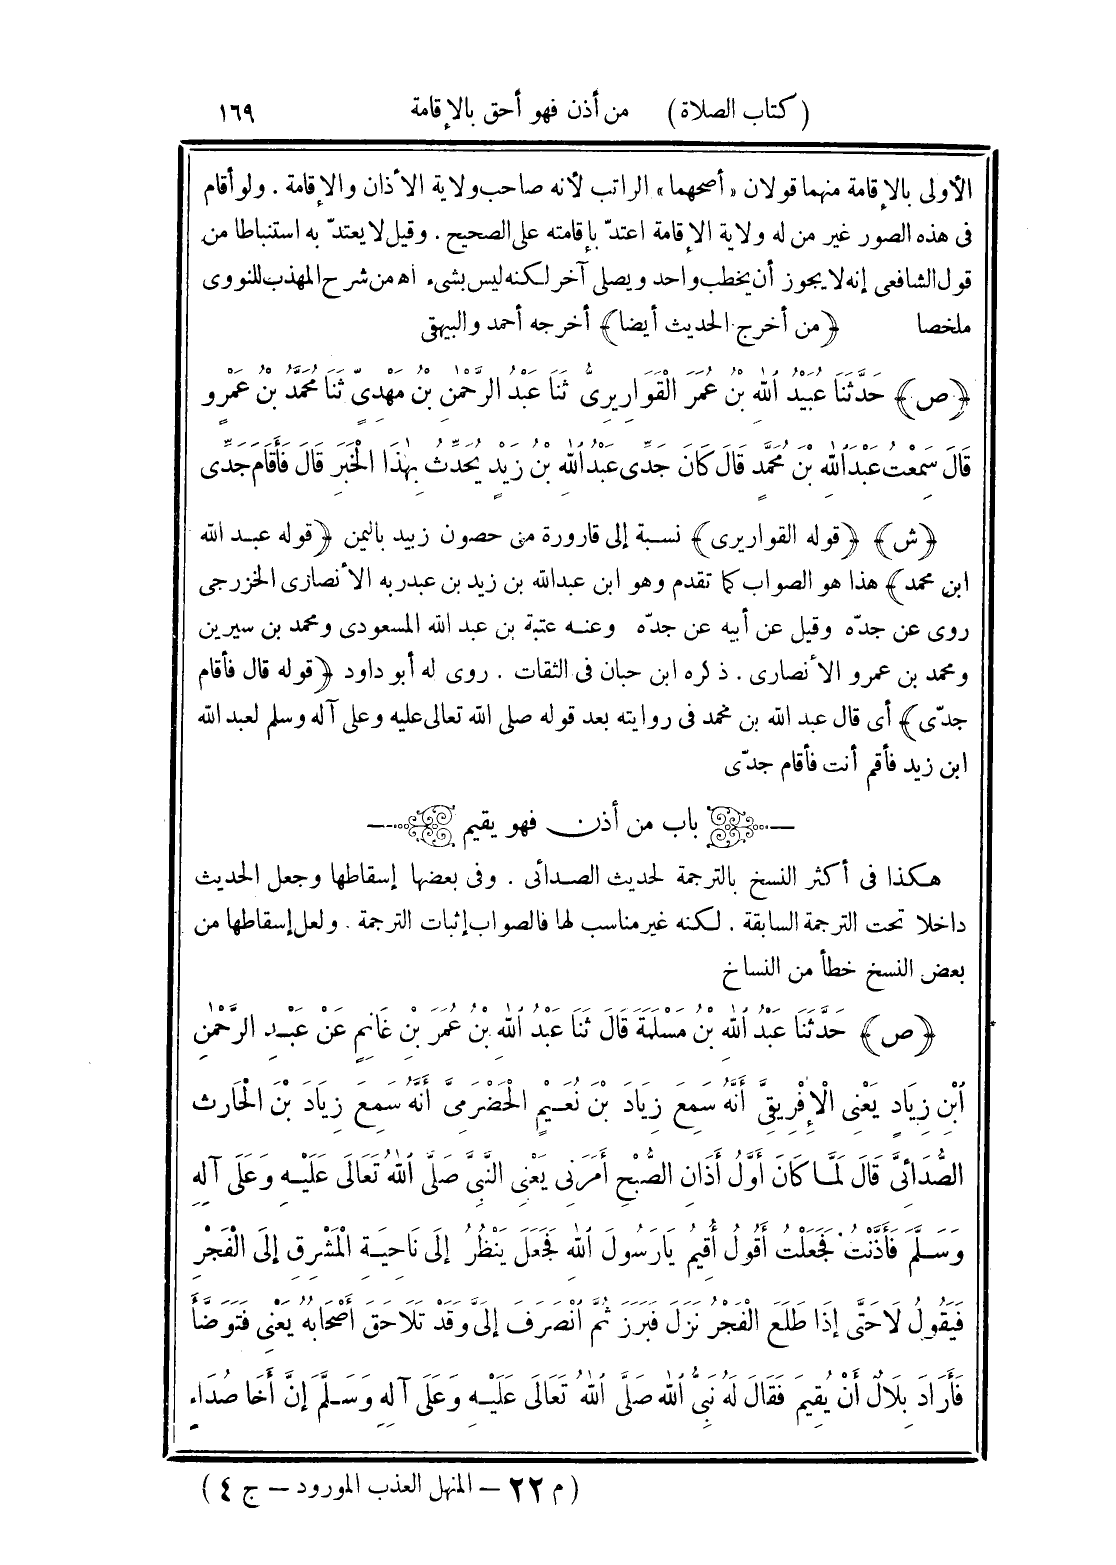 ( كتاب الصلاة ) من أذن فهو أحق بالإقامة ١٦٩
الأولى بالإقامة منهما قولان «أصحهما» الراتب لأنه صاحب ولاية الأذان والإقامة . ولو أقام
فى هذه الصور غير من له ولاية الإقامة اعتدّ بإقامته على الصحيح . وقيل لا يعتدّ به استنباطا من
قول الشافعى إنه لا يجوز أن يخطب واحد ويصلى آخر لكنه ليس بشىء اه من شرح المهذب للنووى
ملخصا ﴿من أخرج الحديث أيضا﴾ أخرجه أحمد والبيهقى
﴿ص﴾ حَدَّثَنَا عُبَيْدُ اللهِ بْنُ عُمَرَ الْقَوَارِيرِىُّ ثَنَا عَبْدُ الرَّحْمٰنِ بْنُ مَهْدِىٍّ ثَنَا مُحَمَّدُ بْنُ عَمْرٍو
قَالَ سَمِعْتُ عَبْدَ اللهِ بْنَ مُحَمَّدٍ قَالَ كَانَ جَدِّى عَبْدُ اللهِ بْنُ زَيْدٍ يُحَدِّثُ بِهٰذَا الْخَبَرِ قَالَ فَأَقَامَ جَدِّى
﴿ش﴾ ﴿قوله القواريرى﴾ نسبة إلى قارورة من حصون زبيد باليمن ﴿قوله عبد الله
ابن محمد﴾ هذا هو الصواب كما تقدم وهو ابن عبدالله بن زيد بن عبدربه الأنصارى الخزرجى
روى عن جدّه وقيل عن أبيه عن جدّه وعنه عتبة بن عبد الله المسعودى ومحمد بن سيرين
ومحمد بن عمرو الأنصارى . ذكره ابن حبان فى الثقات . روى له أبو داود ﴿قوله قال فأقام
جدّى﴾ أى قال عبد الله بن محمد فى روايته بعد قوله صلى الله تعالى عليه وعلى آله وسلم لعبد الله
ابن زيد فأقم أنت فأقام جدّى
باب من أذن فهو يقيم
هكذا فى أكثر النسخ بالترجمة لحديث الصدائى . وفى بعضها إسقاطها وجعل الحديث
داخلا تحت الترجمة السابقة . لكنه غير مناسب لها فالصواب إثبات الترجمة . ولعل إسقاطها من
بعض النسخ خطأ من النساخ
﴿ص﴾ حَدَّثَنَا عَبْدُ اللهِ بْنُ مَسْلَمَةَ قَالَ ثَنَا عَبْدُ اللهِ بْنُ عُمَرَ بْنِ غَانِمٍ عَنْ عَبْدِ الرَّحْمٰنِ
ابْنِ زِيَادٍ يَعْنِى الْإِفْرِيقِىَّ أَنَّهُ سَمِعَ زِيَادَ بْنَ نُعَيْمٍ الْحَضْرَمِىَّ أَنَّهُ سَمِعَ زِيَادَ بْنَ الْحَارِثِ
الصُّدَائِىَّ قَالَ لَمَّا كَانَ أَوَّلُ أَذَانِ الصُّبْحِ أَمَرَنِى يَعْنِى النَّبِىَّ صَلَّى اللهُ تَعَالَى عَلَيْهِ وَعَلَى آلِهِ
وَسَلَّمَ فَأَذَّنْتُ فَجَعَلْتُ أَقُولُ أُقِيمُ يَارَسُولَ اللهِ فَجَعَلَ يَنْظُرُ إِلَى نَاحِيَةِ الْمَشْرِقِ إِلَى الْفَجْرِ
فَيَقُولُ لَا حَتَّى إِذَا طَلَعَ الْفَجْرُ نَزَلَ فَبَرَزَ ثُمَّ انْصَرَفَ إِلَىَّ وَقَدْ تَلَاحَقَ أَصْحَابُهُ يَعْنِى فَتَوَضَّأَ
فَأَرَادَ بِلَالٌ أَنْ يُقِيمَ فَقَالَ لَهُ نَبِىُّ اللهِ صَلَّى اللهُ تَعَالَى عَلَيْهِ وَعَلَى آلِهِ وَسَلَّمَ إِنَّ أَخَا صُدَاءٍ
( م ٢٢ – المنهل العذب المورود – ج ٤ )